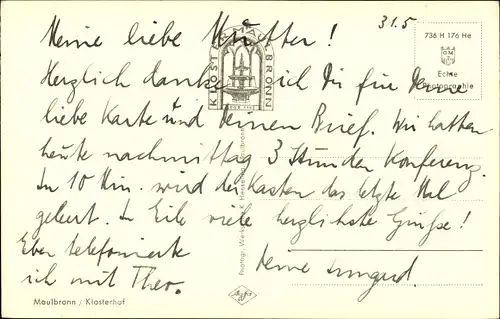 31.5
Meine liebe Mutter!
Herzlich danke ich Dir für Deine
liebe Karte und Deinen Brief. Wir hatten
heute nachmittag 3 Stunden Konferenz.
In 10 Min. wird der Kasten das letzte Mal
geleert. In Eile viele herzlichste Grüße!
Eben telefonierte
ich mit Theo.
Deine Irmgard.
736 H 176 He
Echte
Photographie
KLOSTER MAULBRONN
Photogr. Werkst.
Agfa
Maulbronn / Klosterhof